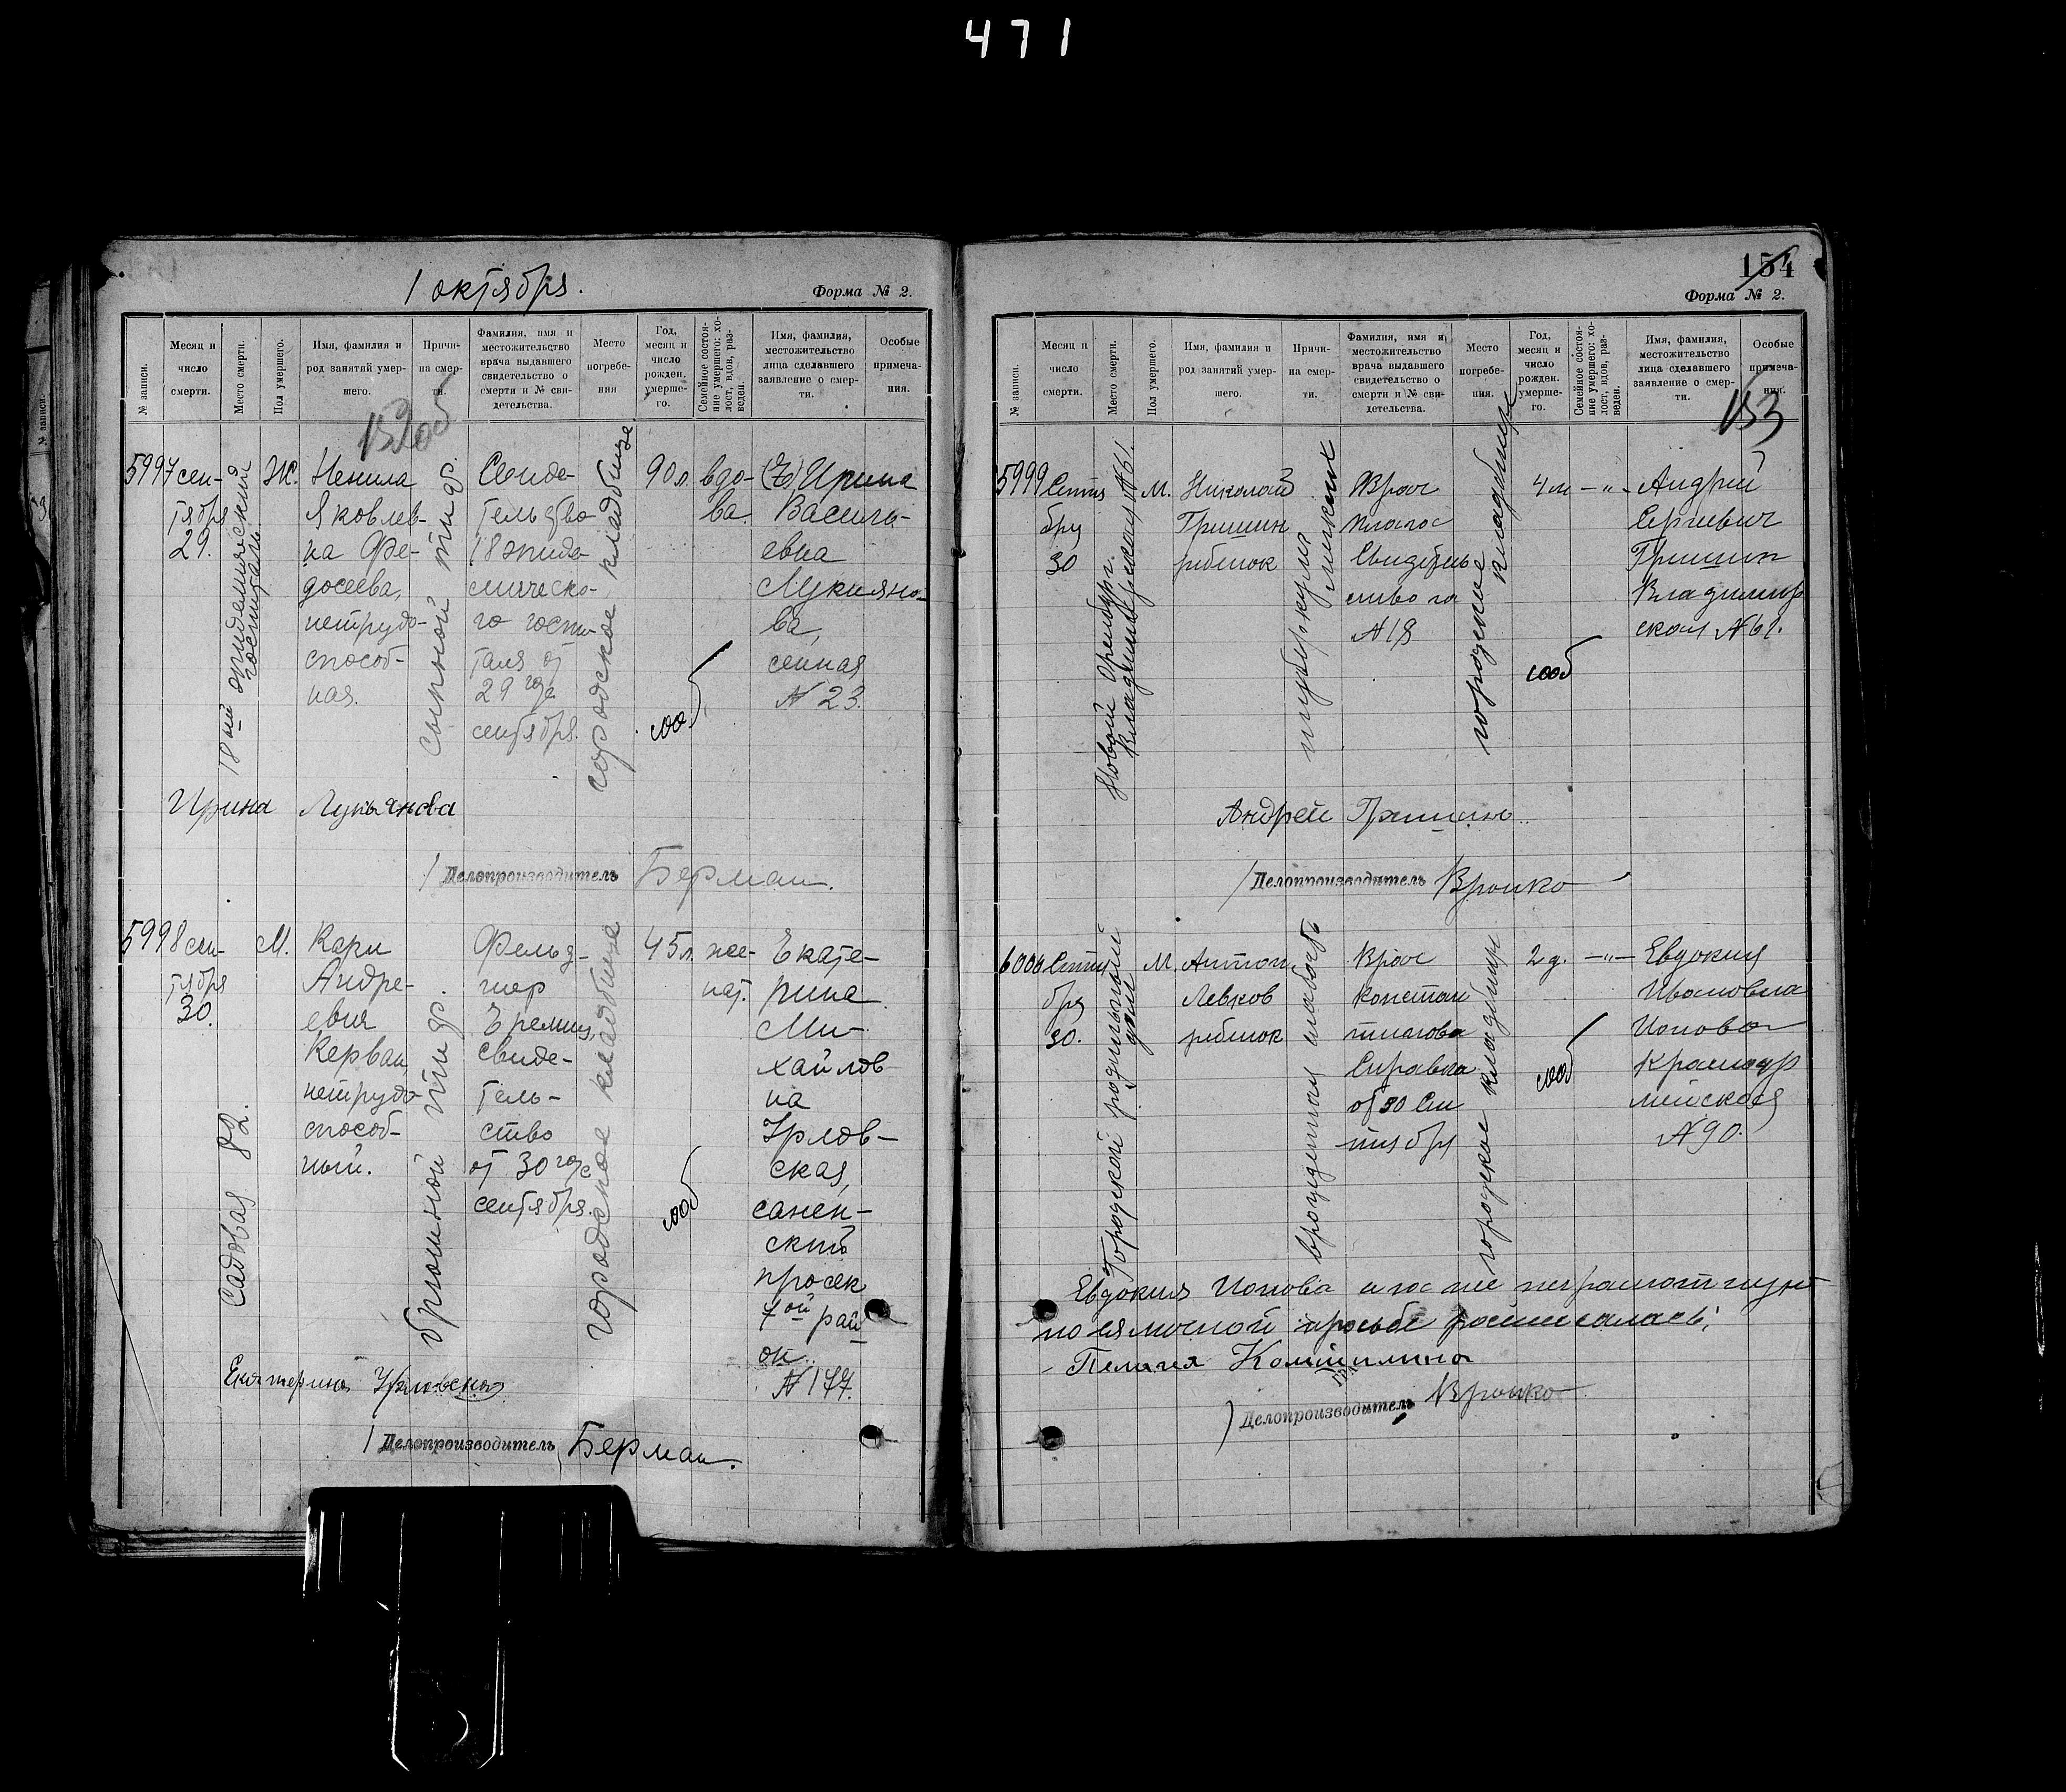 471
1 октября.
Форма № 2.
№ записи.
Месяц и число смерти.
Место смерти.
Пол умершего.
Имя, фамилия и род занятий умершего.
Причина смерти.
Фамилия, имя и местожительство врача выдавшего свидетельство о смерти и № свидетельства.
Место погребения
Год, месяц и число рожден. умершего.
Семейное состояние умершего: холост, вдов, разведен.
Имя, фамилия, местожительство лица сделавшего заявление о смерти.
Особые примечания.
5997
сен-
тября
29.
18 ый эпидемический
госпиталь
Ж.
Ненила
Яковлев-
на Фе-
досеева,
нетрудо-
способ-
ная.
сыпной тиф.
Свиде-
тельство
18 эпиде-
мическо-
го госпи-
таля от
29 го
сентября.
городское кладбище
90 л.
вдо-
ва.
Ирина
Василь-
евна
Лукияно-
ва,
сенная
№ 23.
Ирина Лукьянова
Делопроизводитель Берман.
5998
сен-
тября
30.
Садовая 82.
М.
Карл
Андре-
евич
Керван,
нетрудо-
способ-
ный.
брюшной тиф.
Фельд-
шер
Еремин,
свиде-
тель-
ство
от 30 го
сентября.
городское кладбище
45 л.
же-
нат.
Екате-
рина
Ми-
хайлов-
на
Урлов-
ская,
ский
просек
7 ой рай-
он.
№ 177.
Екатерина
Делопроизводитель Берман.
154
Форма № 2.
153
№ записи.
Месяц и число смерти.
Место смерти.
Пол умершего.
Имя, фамилия и род занятий умершего.
Причина смерти.
Фамилия, имя и местожительство врача выдавшего свидетельство о смерти и № свидетельства.
Место погребения.
Год, месяц и число рожден. умершего.
Семейное состояние умершего: холост, вдов, разведен.
Имя, фамилия, местожительство лица сделавшего заявление о смерти.
Особые примечания.
5999
Сентя
бря
30
Новый Оренбург.
Владимирская № 61.
М.
Николай
Гришин
ребенок
туберкулез
легких
Врач
Свидетель
ство
№ 18
городское
кладбище
4 м
-"-
Андрей
Сергеевич
Гришин
Владимир
ская № 61.
Андрей Гришин.
Делопроизводитель Вронко
6000
Сентя
бря
30.
Городской родильный
дом
М.
Антон
Левков
ребенок
врожденная слабость
Врач
Констан
тинова
Справка
от 30 Сен
тября
городское кладбище
2 д.
-"-
Евдокия
Ивановна
Попова
Красноар
мейская
№ 90.
Евдокия Попова
по ея личной просьбе росписалась;
Пелагея
Делопроизводитель Вронко